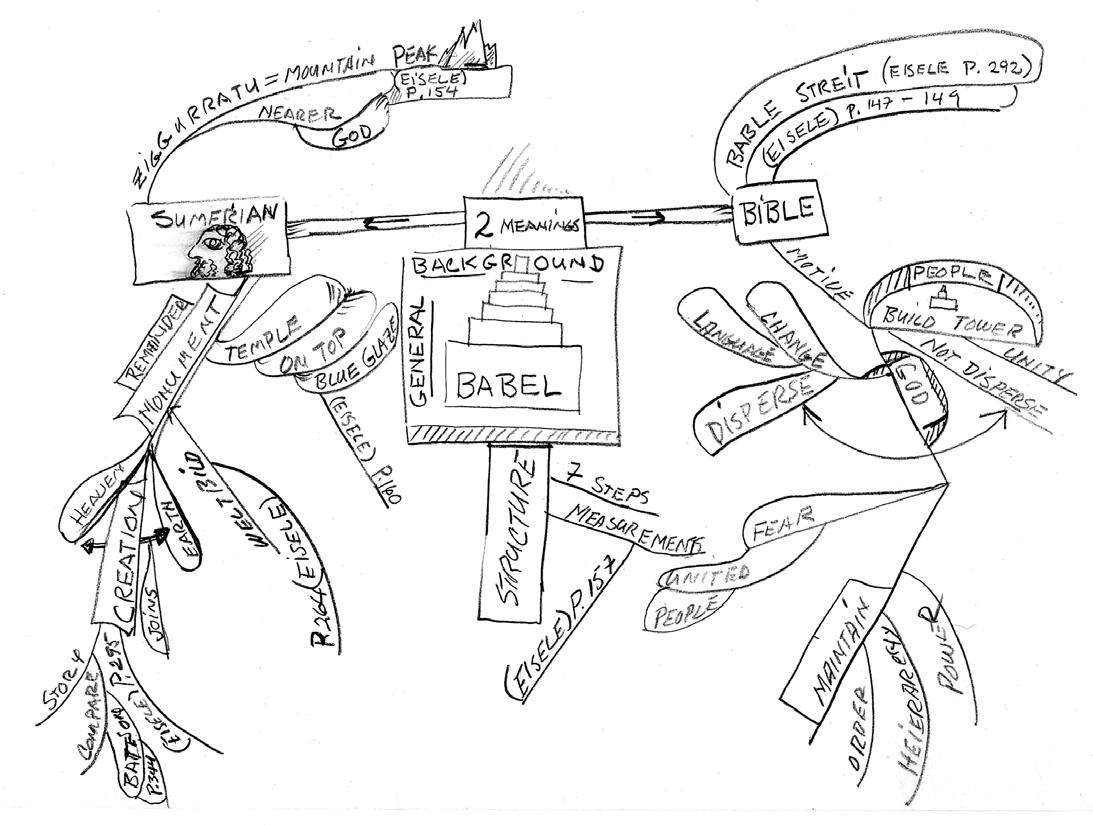 ZIGGURRATU = MOUNTAIN PEAK
(EISELE)
P. 154
NEARER
GOD
SUMERIAN
REMAINDER
MONUMENT
TEMPLE
ON TOP
BLUE GLAZE
(EISELE) P. 160
HEAVEN
CREATION
EARTH
JOINS
WELTBILD
P. 264 (EISELE)
STORY
COMPARE
BATESON
P. 344
(EISELE) P. 295
2 MEANINGS
BACKGROUND
GENERAL
BABEL
STRUCTURE
7 STEPS
MEASUREMENTS
(EISELE) P. 157
BABLE STREIT (EISELE P. 292)
(EISELE) P. 147 - 149
BIBLE
MOTIVE
PEOPLE
BUILD TOWER
UNITY
NOT DISPERSE
GOD
CHANGE
LANGUAGE
DISPERSE
FEAR
UNITED
PEOPLE
MAINTAIN
ORDER
HEIERARCHY
POWER